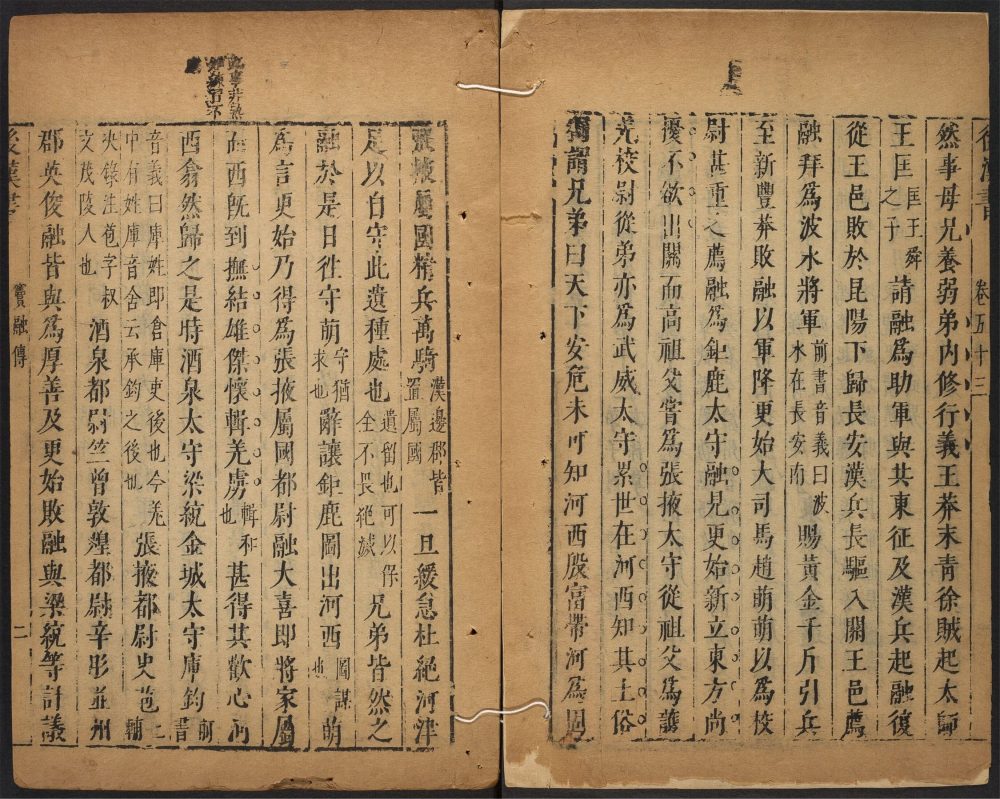 後漢書 卷五十三
然事母兄養弱弟内修行義王莽末青徐賊起太師
王匡匡王舜之子請融爲助軍與共東征及漢兵起融復
從王邑敗於昆陽下歸長安漢兵長驅入關王邑薦
融拜爲波水將軍前書音義曰波水在長安南賜黃金千斤引兵
至新豐莽敗融以軍降更始大司馬趙萌萌以爲校
尉甚重之薦融爲鉅鹿太守融見更始新立東方尚
擾不欲出關而高祖父嘗爲張掖太守從祖父爲護
羌校尉從弟亦爲武威太守累世在河西知其土俗
獨謂兄弟曰天下安危未可知河西殷富帶河爲固
張掖屬國精兵萬騎漢邊郡皆置屬國一旦緩急杜絕河津
足以自守此遺種處也遺留也可以保全不畏絕滅兄弟皆然之
融於是日往守萌守猶求也辭讓鉅鹿圖出河西圖謀也萌
爲言更始乃得爲張掖屬國都尉融大喜即將家屬
而西旣到撫結雄傑懷輯羌虜輯和也甚得其歡心河
西翕然歸之是時酒泉太守梁統金城太守庫鈞前書
音義曰庫姓即倉庫吏後也今羌中有姓庫音舍云承鈞之後也張掖都尉史苞三輔
決錄注苞字叔文茂陵人也酒泉都尉竺曾敦煌都尉辛肜並州
郡英俊融皆與爲厚善及更始敗融與梁統等計議
後漢書 竇融傳 二